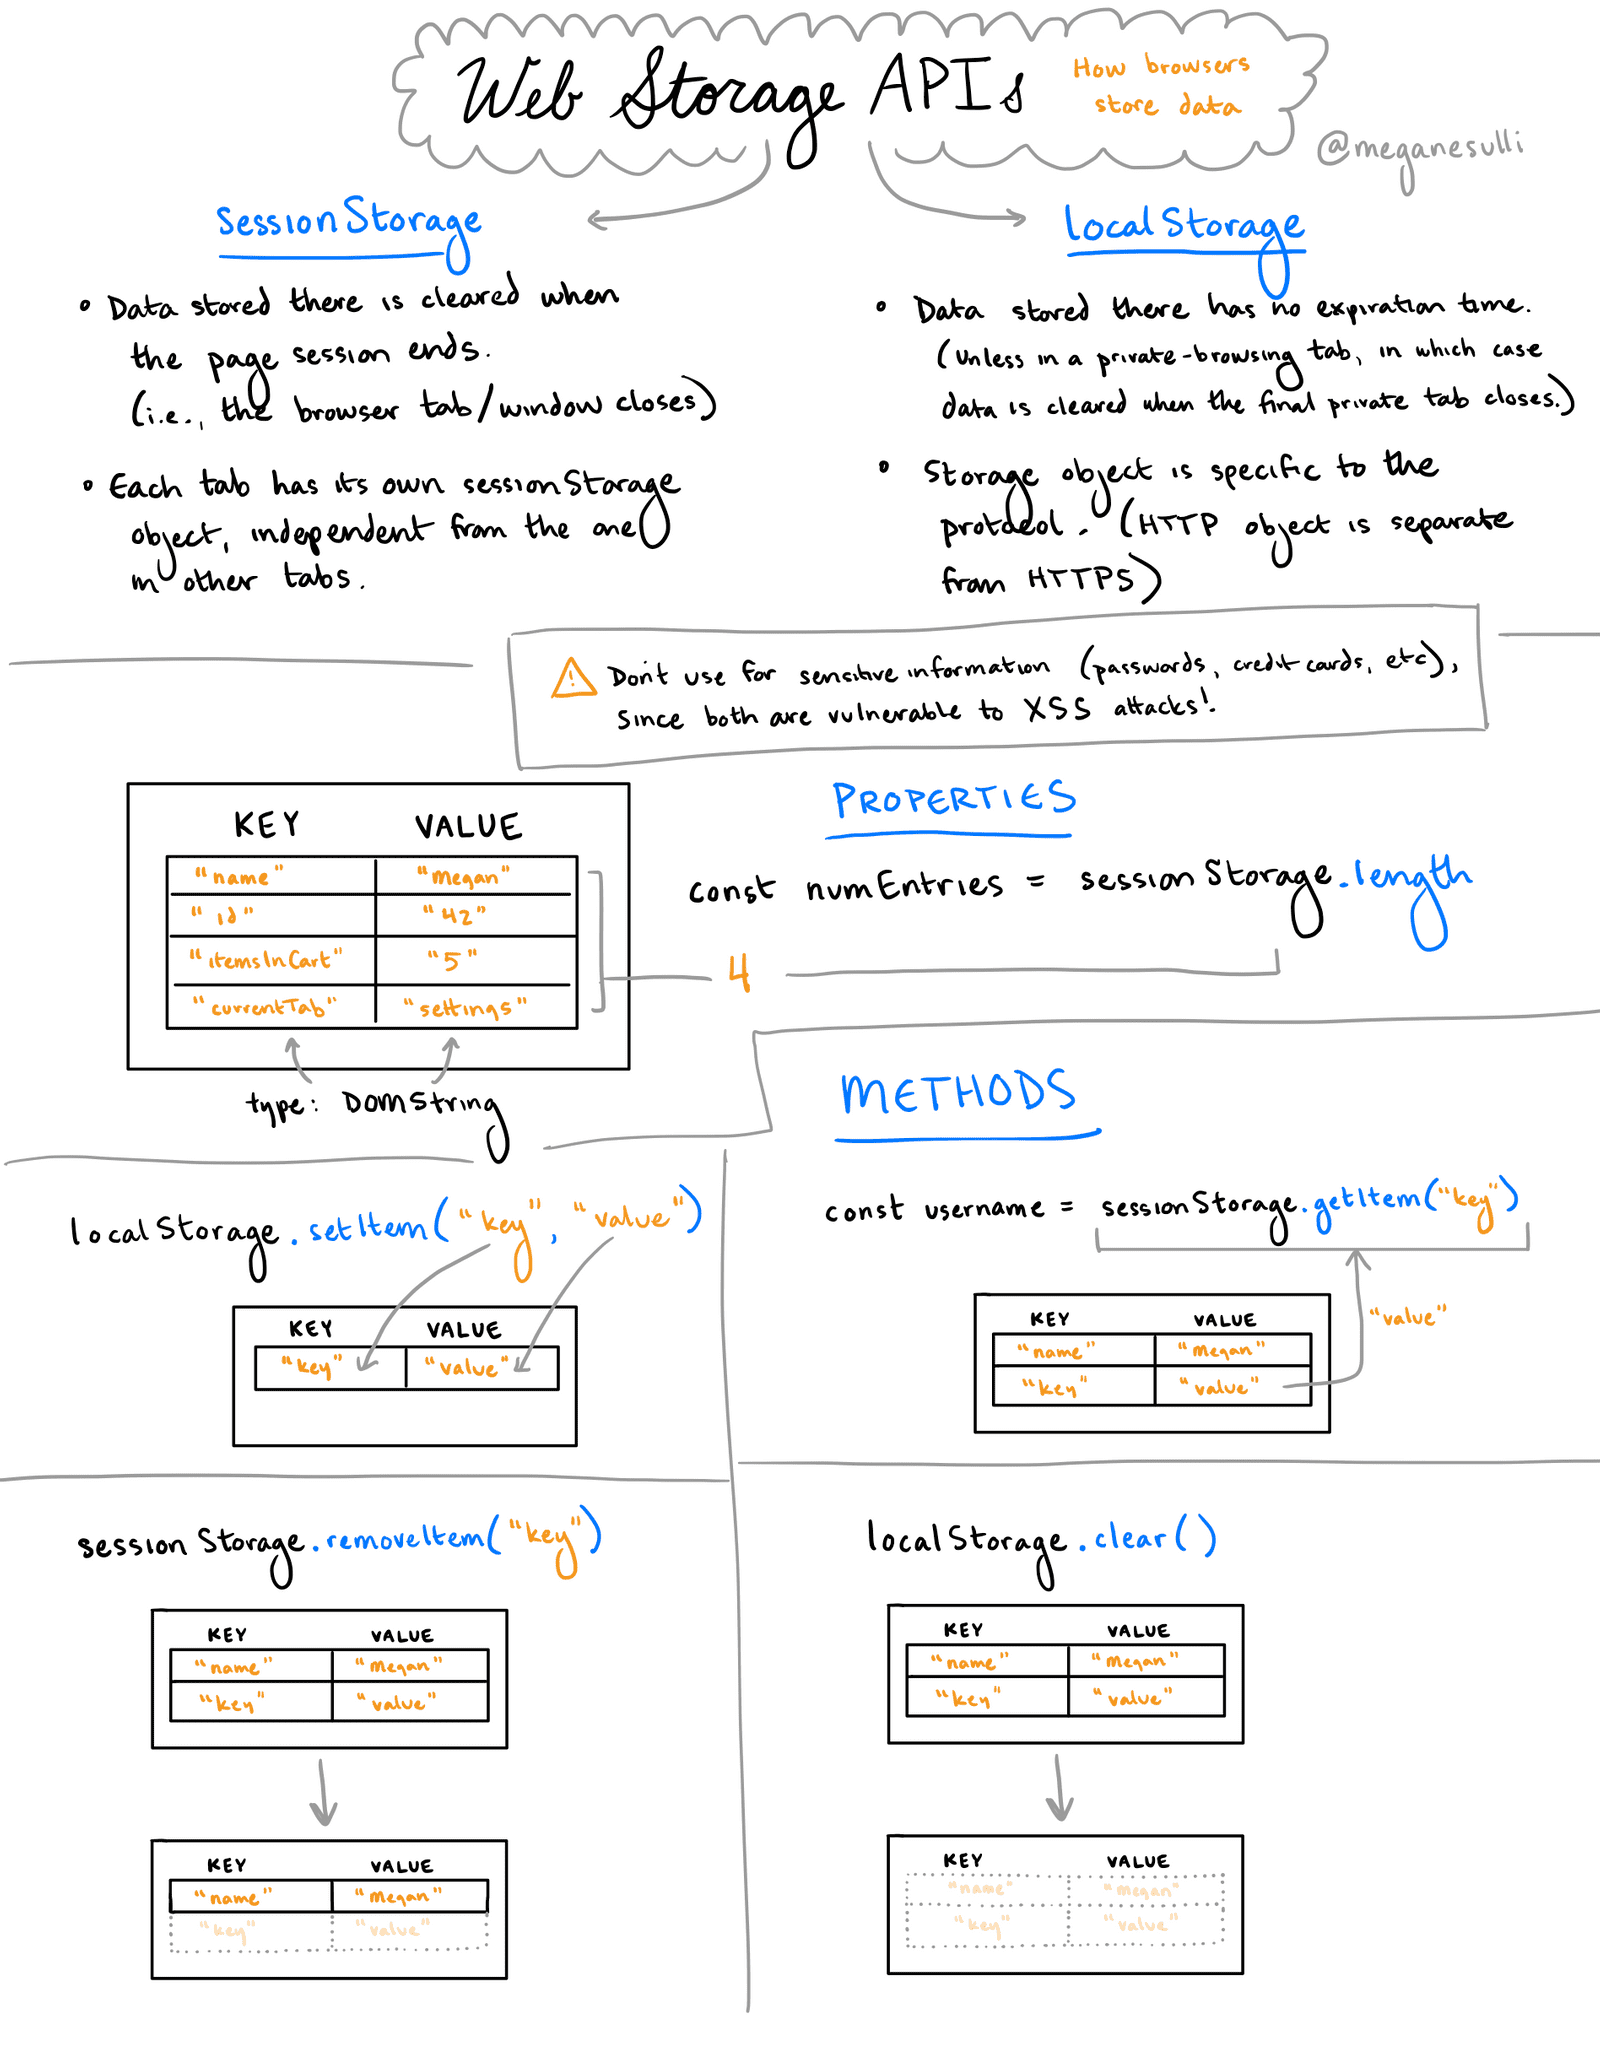 Web Storage APIs
How browsers
store data
@meganesulli
sessionStorage
• Data stored there is cleared when
the page session ends.
(i.e., the browser tab/window closes)
• Each tab has its own sessionStorage
object, independent from the one
in other tabs.
localStorage
• Data stored there has no expiration time.
(Unless in a private-browsing tab, in which case
data is cleared when the final private tab closes.)
• Storage object is specific to the
protocol. (HTTP object is separate
from HTTPS)
Don't use for sensitive information (passwords, credit cards, etc),
since both are vulnerable to XSS attacks!
KEY VALUE
"name" "Megan"
"id" "42"
"itemsInCart" "5"
"currentTab" "settings"
type: DOMString
PROPERTIES
const numEntries = sessionStorage.length
4
METHODS
localStorage.setItem("key", "value")
KEY VALUE
"key" "value"
const username = sessionStorage.getItem("key")
KEY VALUE
"name" "Megan"
"key" "value"
"value"
sessionStorage.removeItem("key")
KEY VALUE
"name" "Megan"
"key" "value"
KEY VALUE
"name" "Megan"
"key" "value"
localStorage.clear()
KEY VALUE
"name" "Megan"
"key" "value"
KEY VALUE
"name" "Megan"
"key" "value"